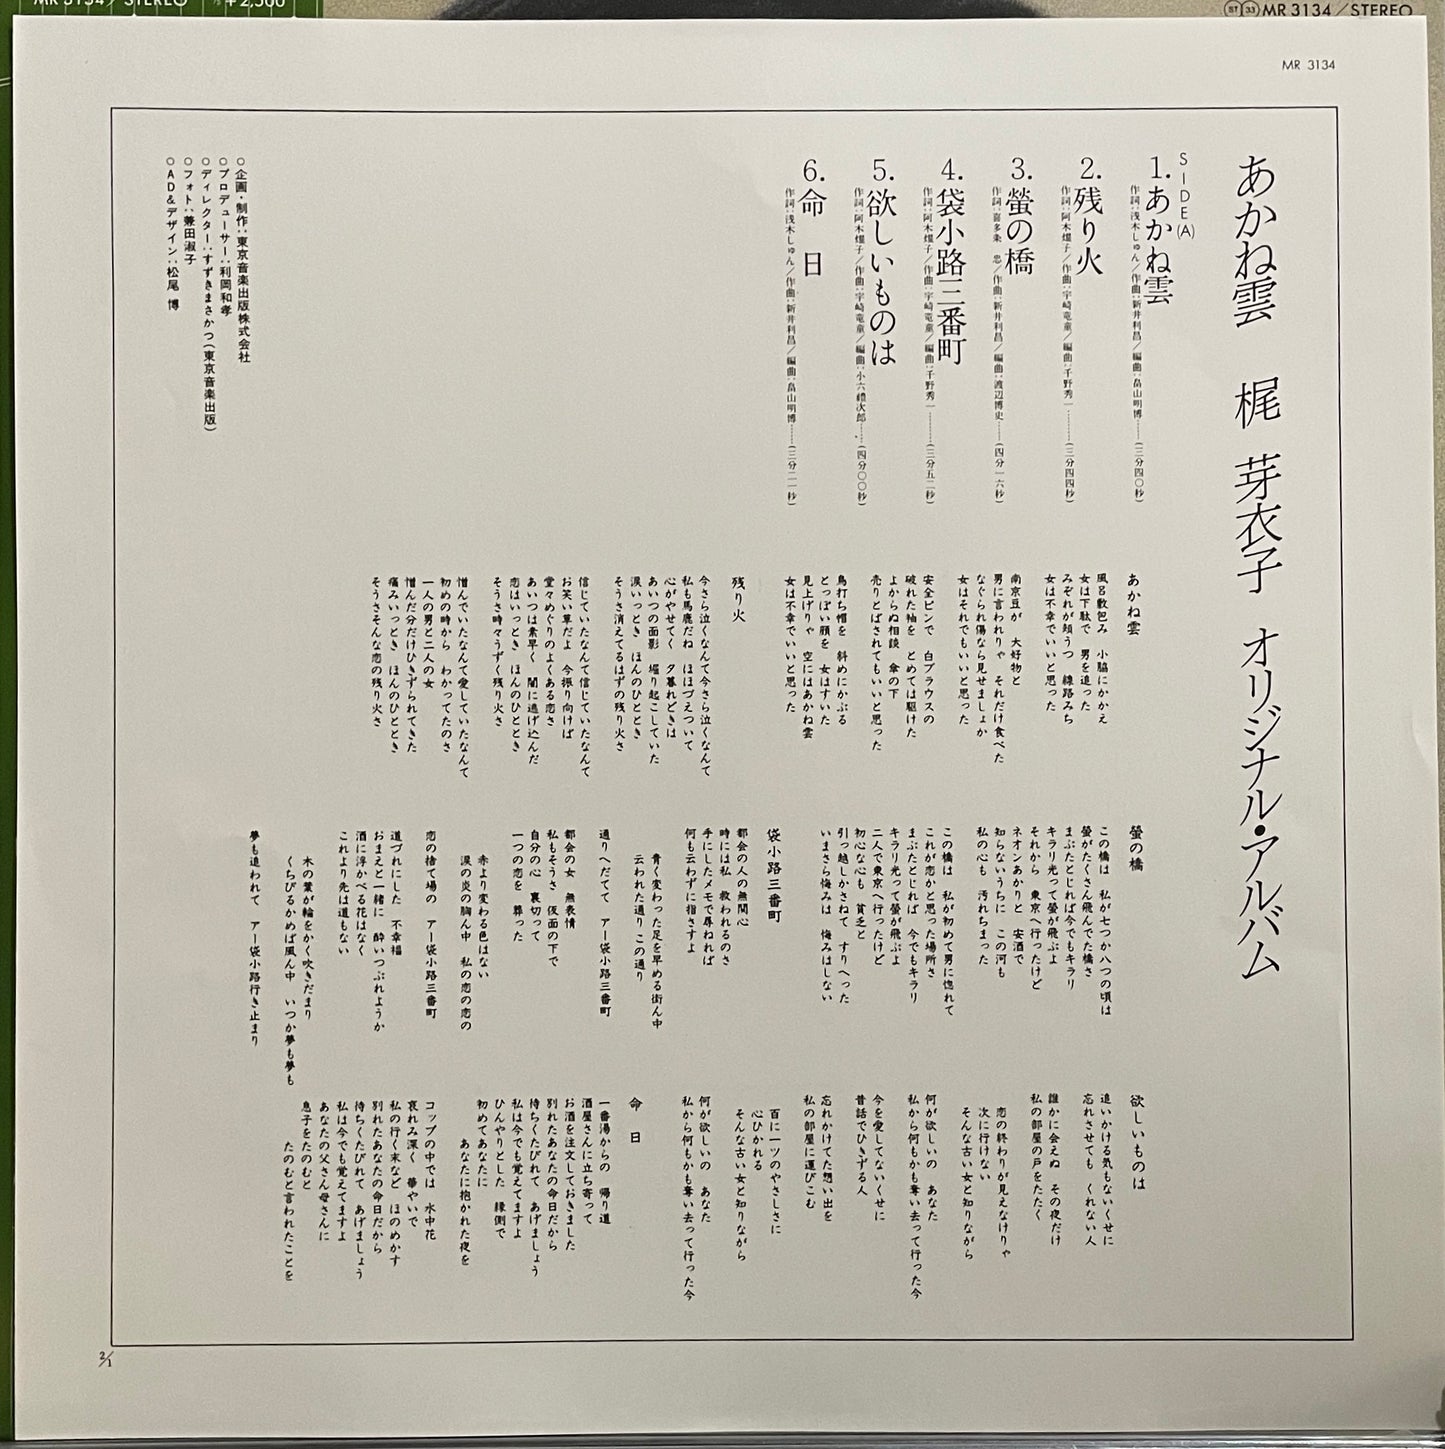 MR 3134/STEREO
¥2,500
MR 3134/STEREO
MR 3134
あかね雲 梶 芽衣子 オリジナル・アルバム
SIDE(A)
1.あかね雲
作詞:浅木しゅん/作曲:新井利昌/編曲:畠山明博……(三分四〇秒)
2.残り火
作詞:阿木燿子/作曲:宇崎竜童/編曲:千野秀一………(三分四四秒)
3.螢の橋
作詞:喜多条 忠/作曲:新井利昌/編曲:渡辺博史……(四分一六秒)
4.袋小路三番町
作詞:阿木燿子/作曲:宇崎竜童/編曲:千野秀一………(三分五二秒)
5.欲しいものは
作詞:阿木燿子/作曲:宇崎竜童/編曲:小六禮次郎……(四分〇〇秒)
6.命 日
作詞:浅木しゅん/作曲:新井利昌/編曲:畠山明博……(三分二一秒)
○企画・制作:東京音楽出版株式会社
○プロデューサー:利岡和孝
○ディレクター:すずきまさかつ(東京音楽出版)
○フォト:兼田淑子
○AD&デザイン:松尾 博
あかね雲
風呂敷包み 小脇にかかえ
女は下駄で 男を追った
みぞれが頬うつ 線路みち
女は不幸でいいと思った
南京豆が 大好物と
男に言われりゃ それだけ食べた
なぐられ傷なら見せましょか
女はそれでもいいと思った
安全ピンで 白ブラウスの
破れた袖を とめては駆けた
よからぬ相談 傘の下
売りとばされてもいいと思った
鳥打ち帽を 斜めにかぶる
とっぽい顔を 女はすいた
見上げりゃ 空にはあかね雲
女は不幸でいいと思った
残り火
今さら泣くなんて今さら泣くなんて
私も馬鹿だね ほほづえついて
心がやせてく 夕暮れどきは
あいつの面影 堀り起こしていた
涙いっとき ほんのひととき
そうさ消えてるはずの残り火さ
信じていたなんて信じていたなんて
お笑い草だよ 今振り向けば
堂々めぐりのよくある恋さ
あいつは素早く 闇に逃げ込んだ
恋はいっとき ほんのひととき
そうさ時々うずく残り火さ
憎んでいたなんて愛していたなんて
初めの時から わかってたのさ
一人の男と二人の女
憎んだ分だけひきずられてきた
痛みいっとき ほんのひととき
そうさそんな恋の残り火さ
螢の橋
この橋は 私が七つか八つの頃は
螢がたくさん飛んでた橋さ
まぶたとじれば今でもキラリ
キラリ光って螢が飛ぶよ
それから 東京へ行ったけど
ネオンあかりと 安酒で
知らないうちに この河も
私の心も 汚れちまった
この橋は 私が初めて男に惚れて
これが恋かと思った場所さ
まぶたとじれば 今でもキラリ
キラリ光って螢が飛ぶよ
二人で東京へ行ったけど
初心な心も 貧乏と
引っ越しかさねて すりへった
いまさら悔みは 悔みはしない
袋小路三番町
都会の人の無関心
時には私 救われるのさ
手にしたメモで尋ねれば
何も云わずに指さすよ
青く変わった足を早める街ん中
云われた通りこの通り
通りへだてて アー袋小路三番町
都会の女 無表情
私もそうさ 仮面の下で
自分の心 裏切って
一つの恋を 葬った
赤より変わる色はない
涙の炎の胸ん中 私の恋の恋の
恋の捨て場の アー袋小路三番町
道づれにした 不幸福
おまえと一緒に 酔いつぶれようか
酒に浮かべる花はなく
これより先は道もない
木の葉が輪をかく吹きだまり
くちびるかめば風ん中 いつか夢も夢も
夢も追われて アー袋小路行き止まり
欲しいものは
追いかける気もないくせに
忘れさせても くれない人
誰かに会えぬ その夜だけ
私の部屋の戸をたたく
恋の終わりが見えなけりゃ
次に行けない
そんな古い女と知りながら
何が欲しいの あなた
私から何もかも奪い去って行った今
今を愛してないくせに
昔話でひきずる人
忘れかけてた想い出を
私の部屋に運びこむ
百に一ツのやさしさに
心ひかれる
そんな古い女と知りながら
何が欲しいの あなた
私から何もかも奪い去って行った今
命 日
一番湯からの 帰り道
酒屋さんに立ち寄って
お酒を注文しておきました
別れたあなたの命日だから
待ちくたびれて あげましょう
私は今でも覚えてますよ
ひんやりとした 縁側で
初めてあなたに
あなたに抱かれた夜を
コップの中では 水中花
哀れみ深く 華やいで
私の行く末など ほのめかす
別れたあなたの命日だから
待ちくたびれて あげましょう
私は今でも覚えてますよ
あなたの父さん母さんに
息子をたのむと
たのむと言われたことを
2/1